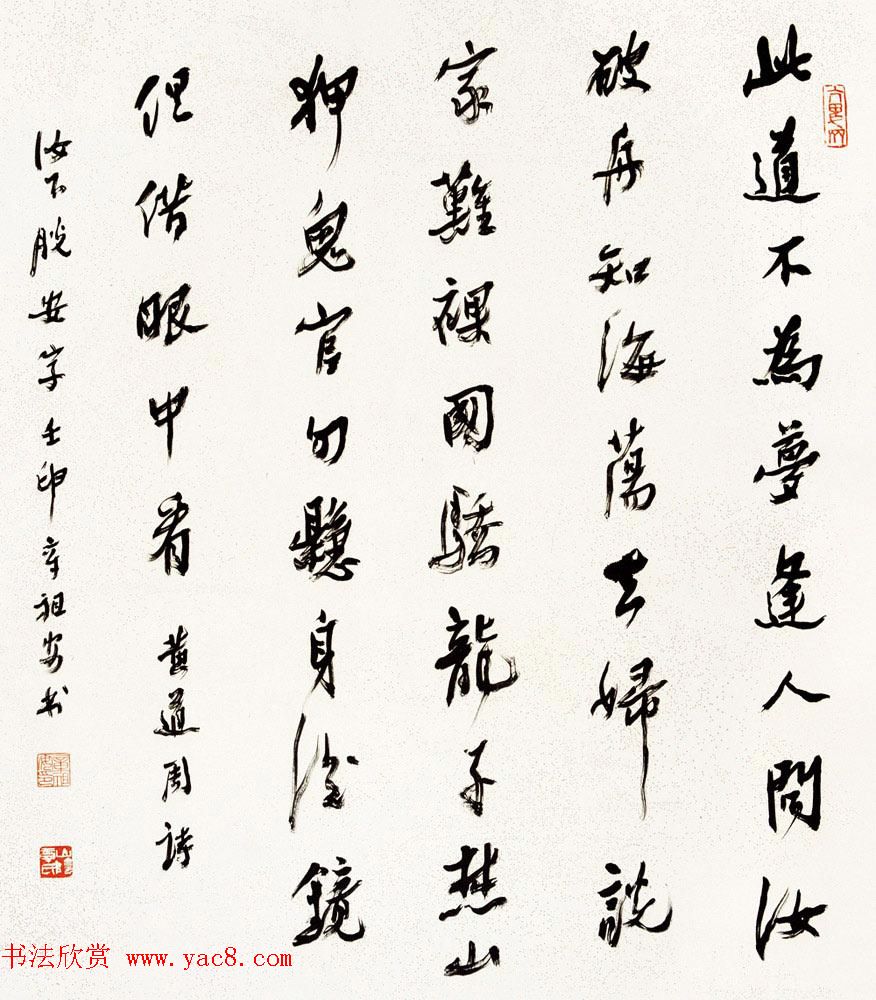 此道不為夢逢人問汝
破舟知海蕩去婦說
家難裸國驕龍子焚山
狎鬼官勿懸身後鏡
但借眼中看 黄道周詩
汝下脫安字壬申章祖安书
书法欣赏 www.yac8.com